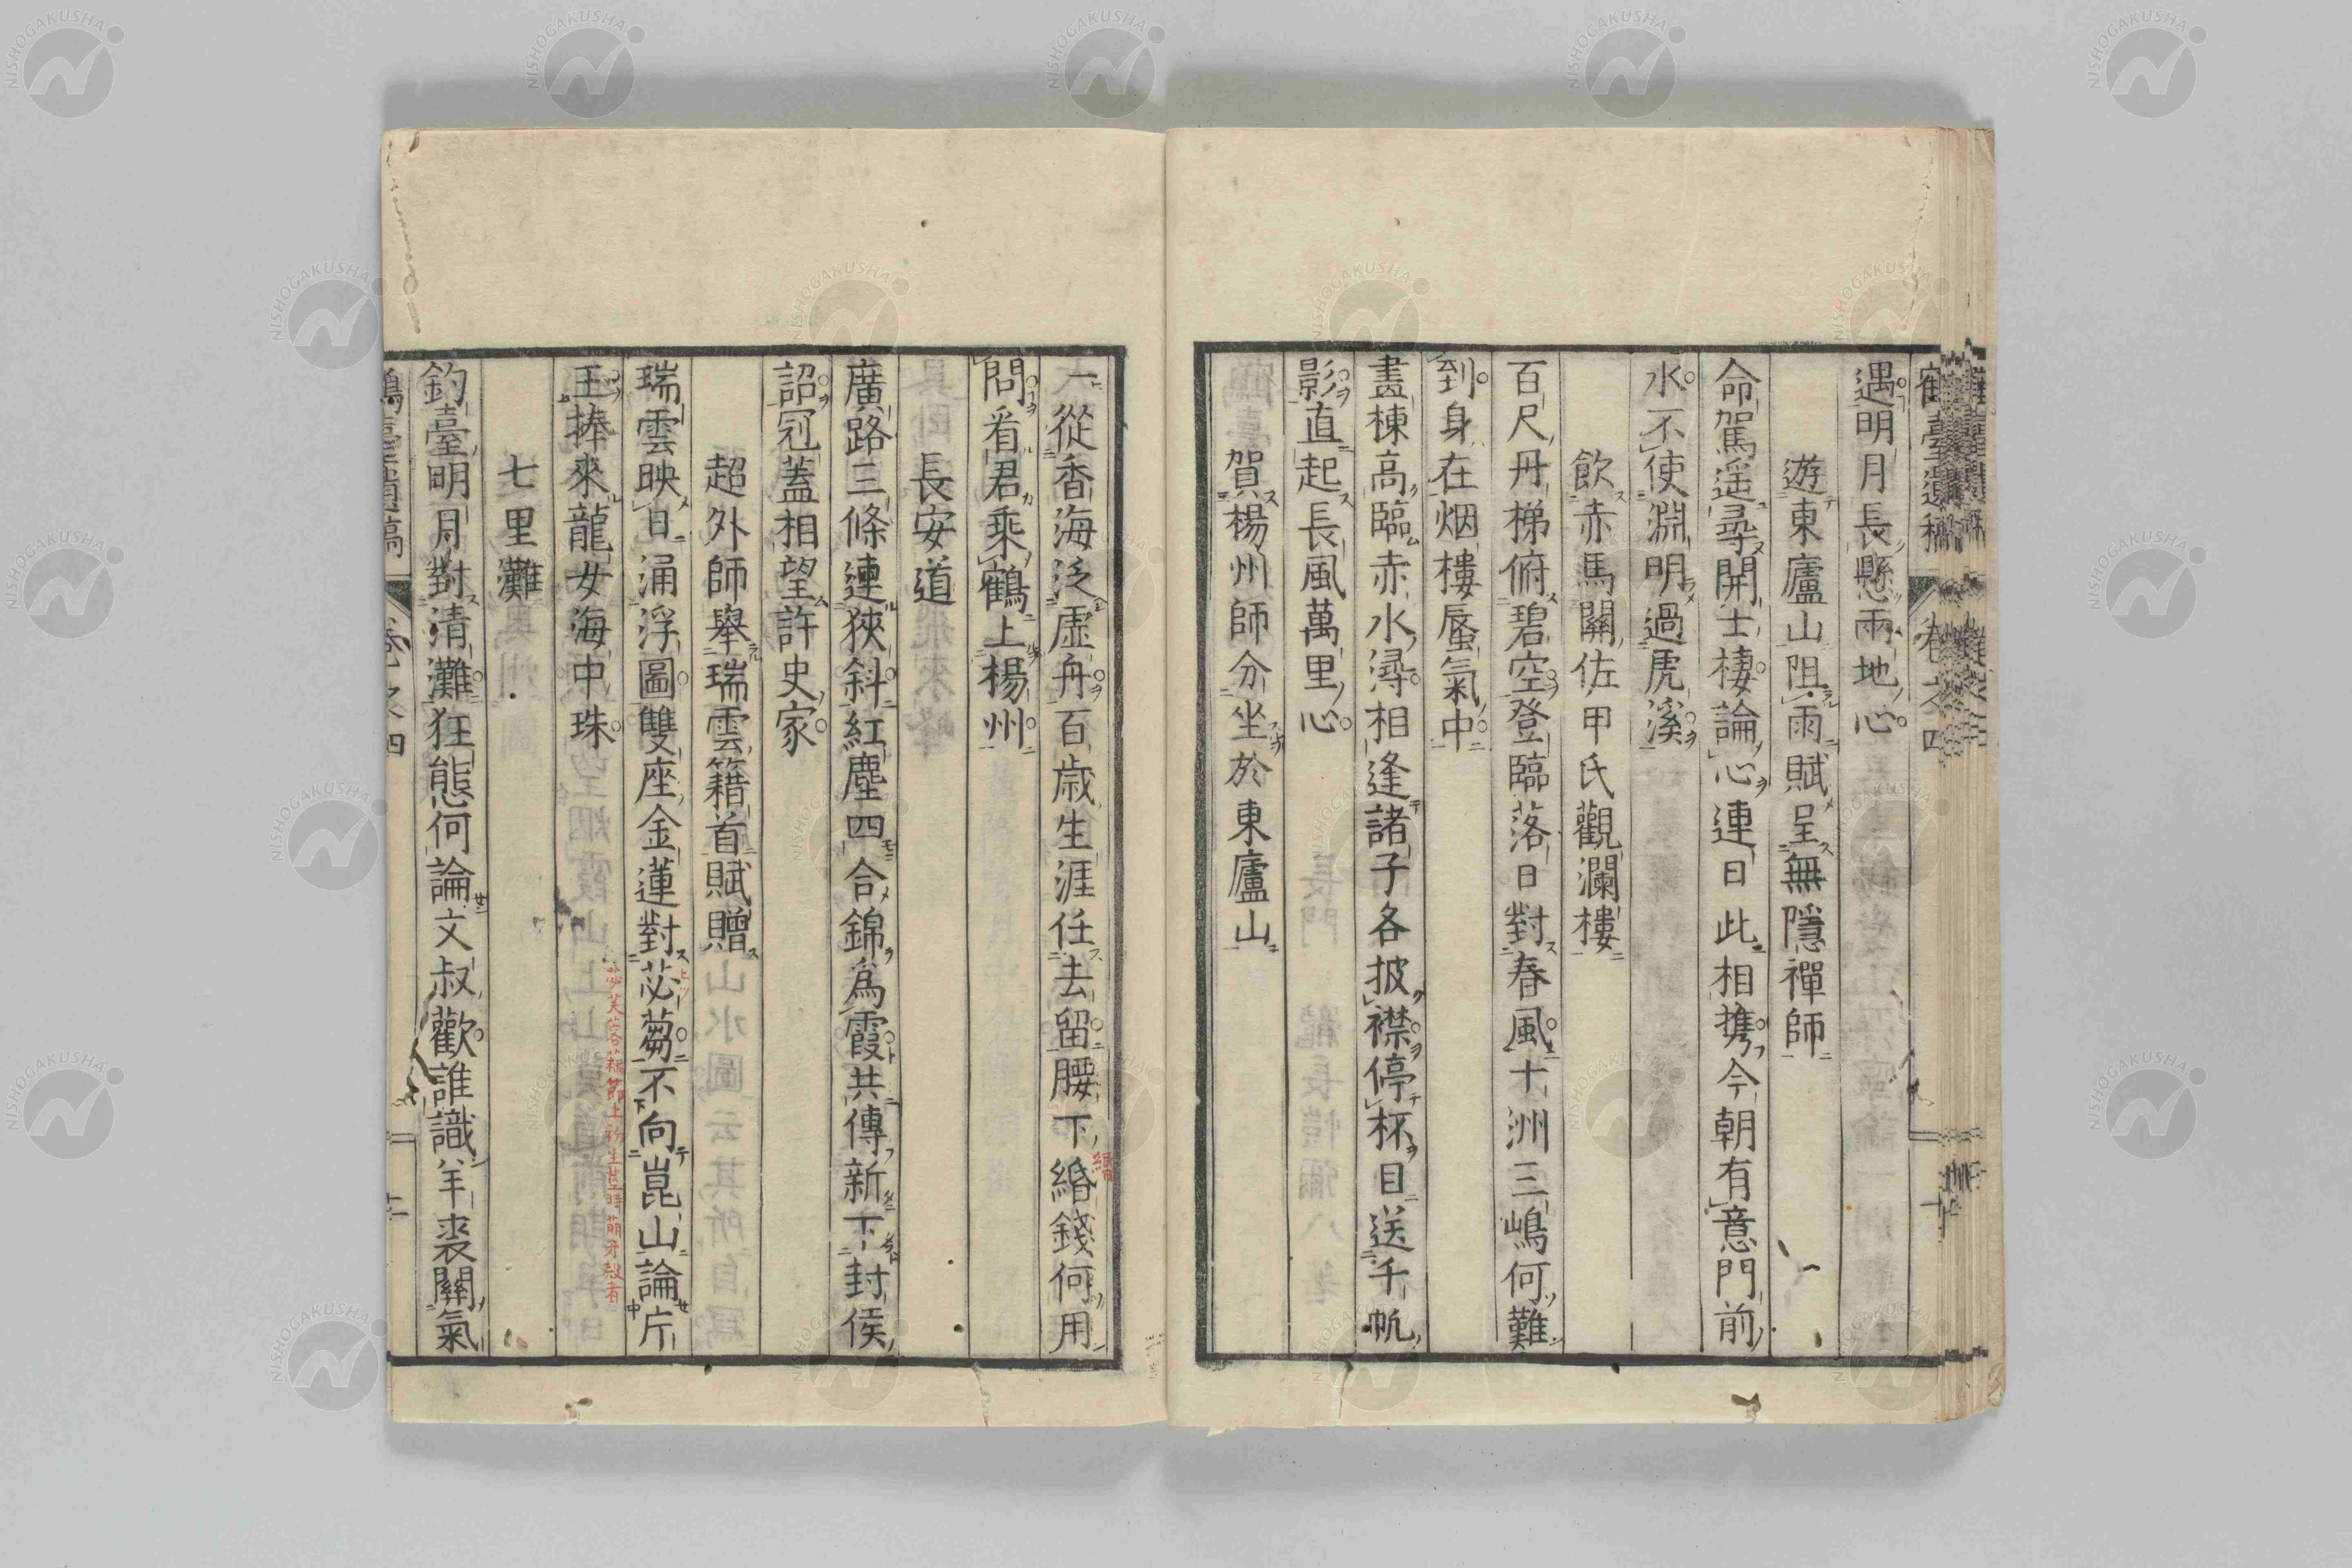 鶴臺遺稿 卷之四
遇明月長懸兩地心
遊東廬山阻雨賦呈無隱禪師
命駕遥尋開士棲論心連日此相携今朝有意門前
水不使淵明過虎溪
飲赤馬關佐甲氏觀瀾樓
百尺丹梯俯碧空登臨落日對春風十洲三嶋何難
到身在烟樓蜃氣中
畫棟高臨赤水潯相逢諸子各披襟停杯目送千帆
影直起長風萬里心
賀楊州師分坐於東廬山
一從香海泛虛舟百歲生涯任去留腰下緡錢何用
問看君乘鶴上楊州
長安道
廣路三條連狹斜紅塵四合錦爲霞共傳新下封侯
詔冠蓋相望許史家
超外師擧瑞雲籍首賦贈
瑞雲映日涌浮圖雙座金蓮對苾蒭不向崑山論片
玉捧來龍女海中珠
七里灘
釣臺明月對清灘狂態何論文叔歡誰識羊裘關氣
鶴臺遺稿 卷之四
NISHOGAKUSHA